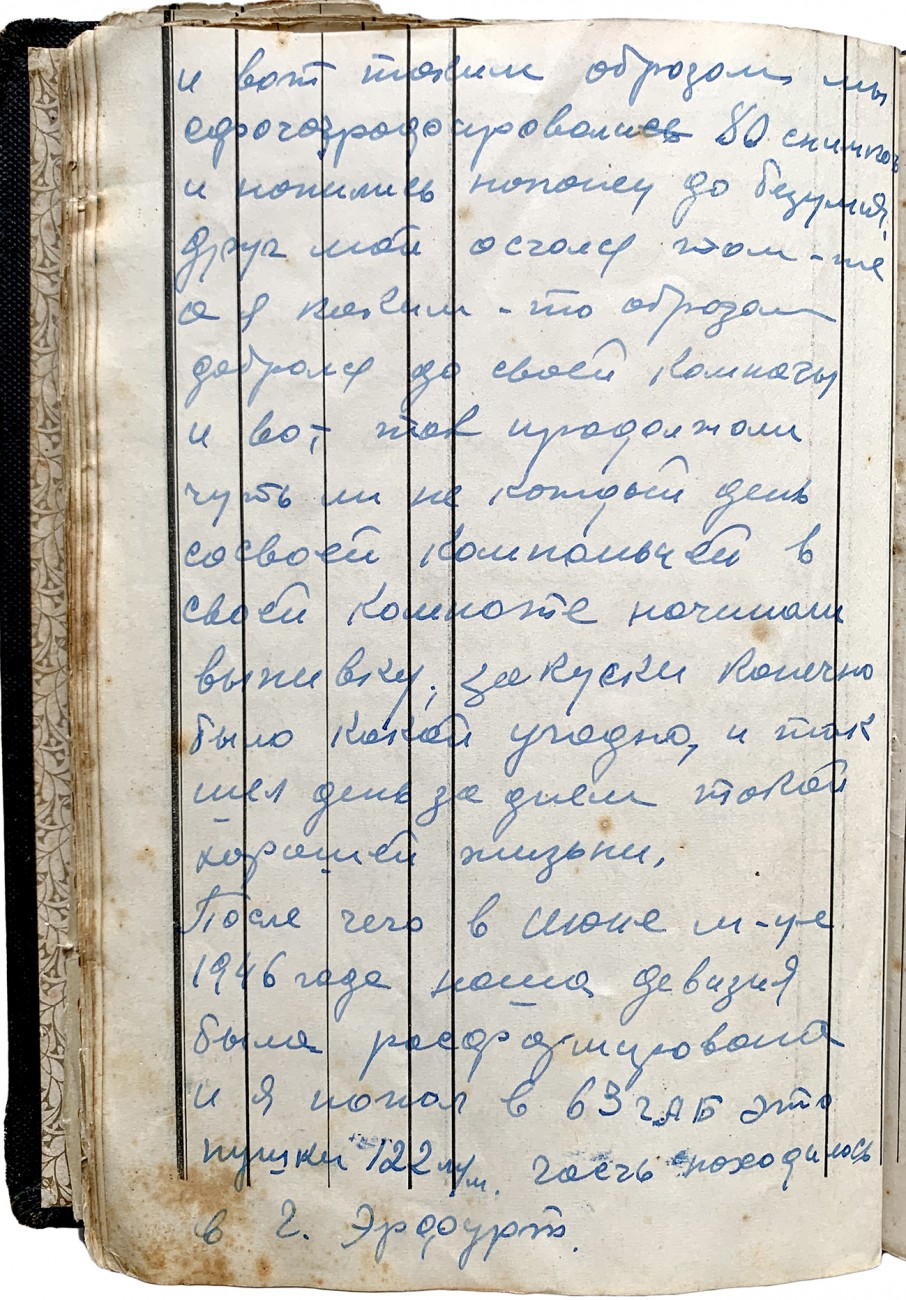 и вот таким образом мы
сфотографировались 80 снимков
и напились попому до безумия,
друг мой остался там-же
а я каким-то образом
добрался до своей комнаты
и вот так продолжали
чуть ли не каждый день
сосвоей компаньей в
своей комнате начинали
выпивку, закуски конечно
было какой угодно, и так
шел день за днем такой
хорошей жизьни.
После чего в июне м-це
1946 года наша девизия
была расформирована
и я попал в 63 ГАБ это
пушки 122 м/м. часть находилась
в г. Эрфурт.